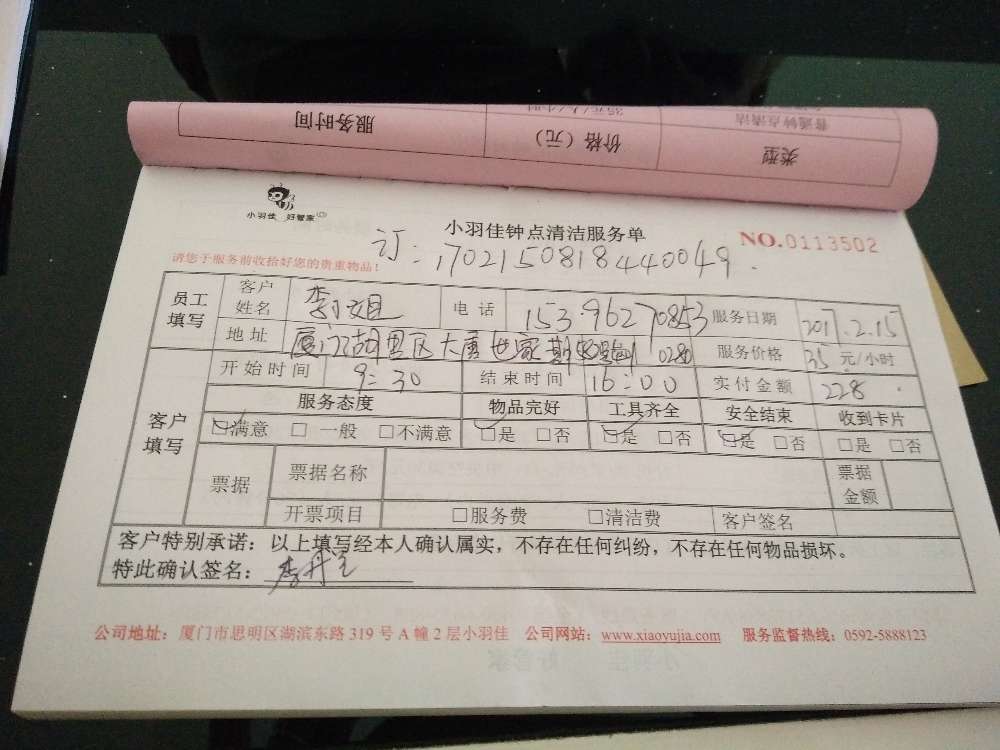 服务时间 价格（元） 类型
35元/人/小时 普通钟点清洁
小羽佳 好管家
小羽佳钟点清洁服务单 NO.0113502
订：170215081844 0049.
请您于服务前收拾好您的贵重物品！
员工填写 客户姓名 李小姐 电话 153 9627 0853 服务日期 2017.2.15
地址 厦门湖里区大唐世家 期 0280 服务价格 35元/小时
客户填写 开始时间 9:30 结束时间 16:00 实付金额 228
服务态度 物品完好 工具齐全 安全结束 收到卡片
☑满意 □一般 □不满意 ☑是 □否 ☑是 □否 ☑是 □否 □是 □否
票据 票据名称 票据金额
开票项目 □服务费 □清洁费 客户签名
客户特别承诺：以上填写经本人确认属实，不存在任何纠纷，不存在任何物品损坏。
特此确认签名：李丹
公司地址：厦门市思明区湖滨东路319号A幢2层小羽佳 公司网站：www.xiaoyujia.com 服务监督热线：0592-5888123